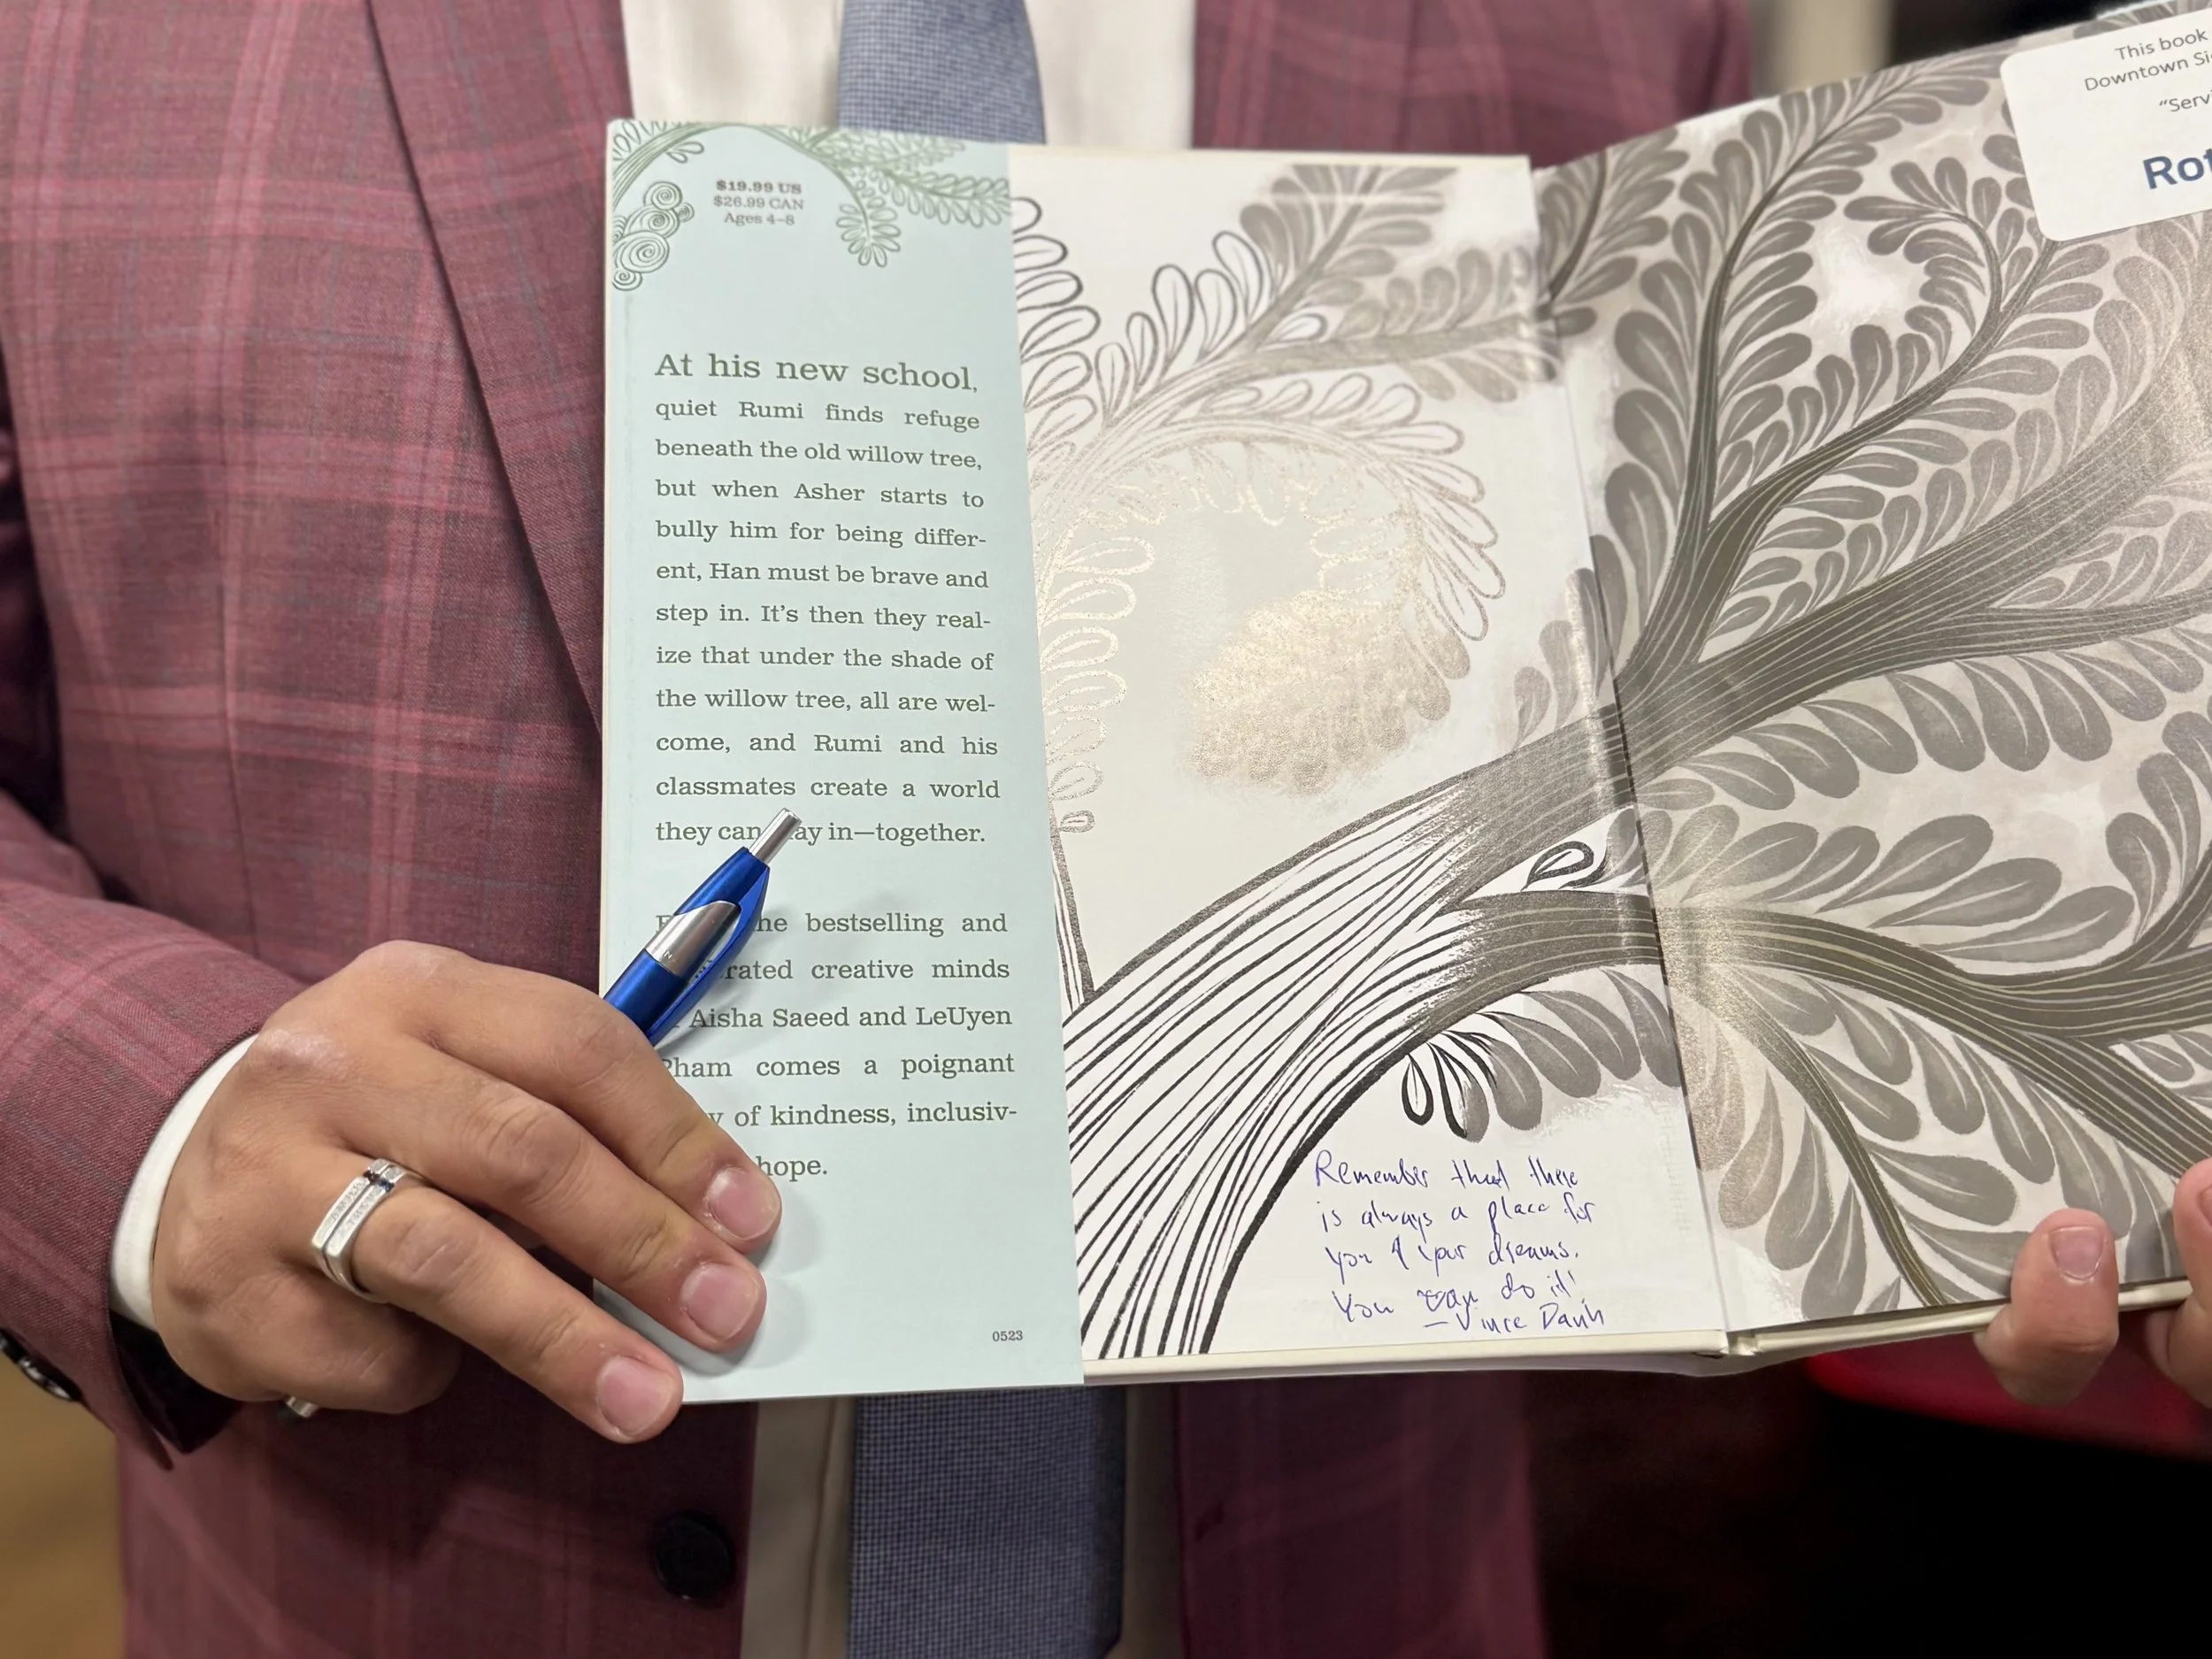 $19.99 US
$26.99 CAN
Ages 4–8
At his new school,
quiet Rumi finds refuge
beneath the old willow tree,
but when Asher starts to
bully him for being differ-
ent, Han must be brave and
step in. It's then they real-
ize that under the shade of
the willow tree, all are wel-
come, and Rumi and his
classmates create a world
they can in—together.
bestselling and
creative minds
Aisha Saeed and LeUyen
Pham comes a poignant
of kindness, inclusiv-
hope.
0523
This book
Downtown
Remember that there
is always a place for
you & your dreams.
You can do it!
– Vince Danh